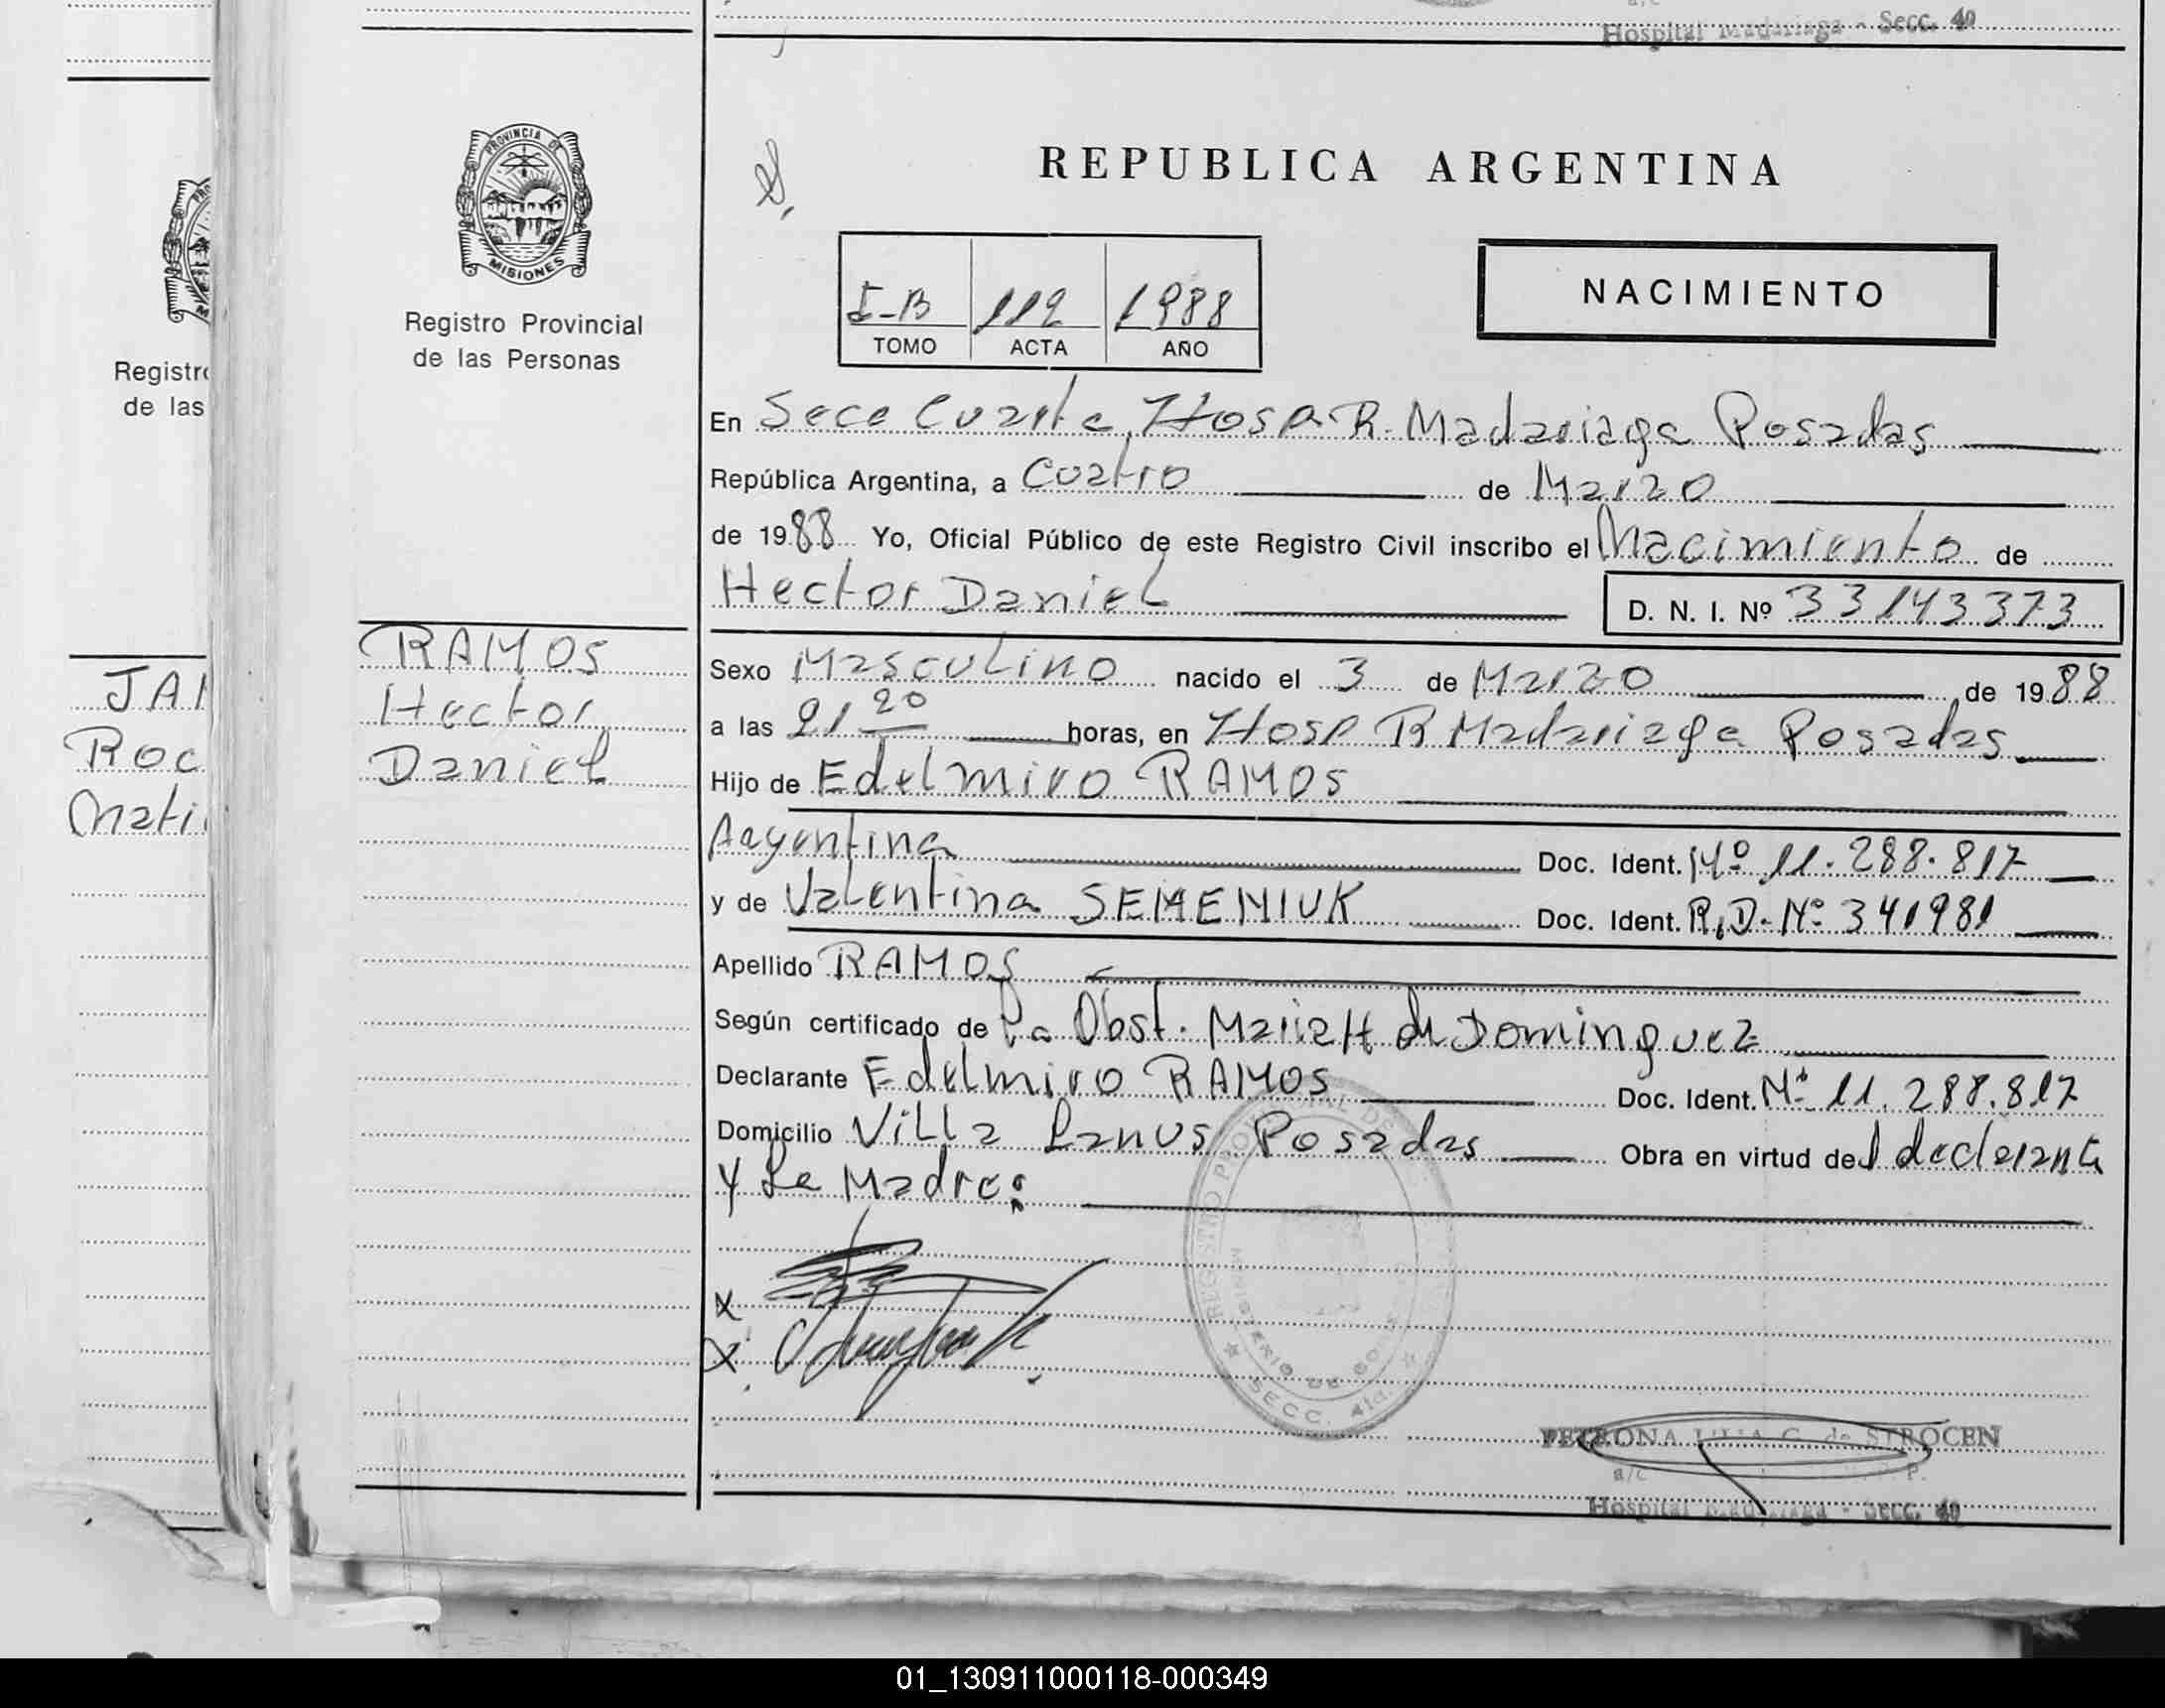 Hospital Madariaga - Secc. 4a
PROVINCIA DE
MISIONES
Registro Provincial
de las Personas
REPUBLICA ARGENTINA
I-B 112 1988
TOMO ACTA AÑO
NACIMIENTO
En Secc Cuarta, Hosp R. Madariaga Posadas
República Argentina, a Cuatro de Marzo
de 1988 Yo, Oficial Público de este Registro Civil inscribo el Nacimiento de
Hector Daniel D. N. I. Nº 33143373
RAMOS
Hector
Daniel
Sexo Masculino nacido el 3 de Marzo de 1988
a las 21 20 horas, en Hosp R Madariaga Posadas
Hijo de Edelmiro RAMOS
Argentina Doc. Ident. Nº 11.288.817
y de Valentina SEMENIUK Doc. Ident. R.D. Nº 341981
Apellido RAMOS
Según certificado de La Obst. Maria H de Dominguez
Declarante Edelmiro RAMOS Doc. Ident. Nº 11.288.817
Domicilio Villa Lanus Posadas Obra en virtud del declarante
y La Madre:
x
x
REGISTRO PROVINCIAL DE
MINISTERIO DE GOB
SECC. 4ta.
PETRONA C. de STROCEN
a/c P.
Hospital Madariaga - Secc. 4a
Registr
de las
JA
ROC
Mati
01_130911000118-000349